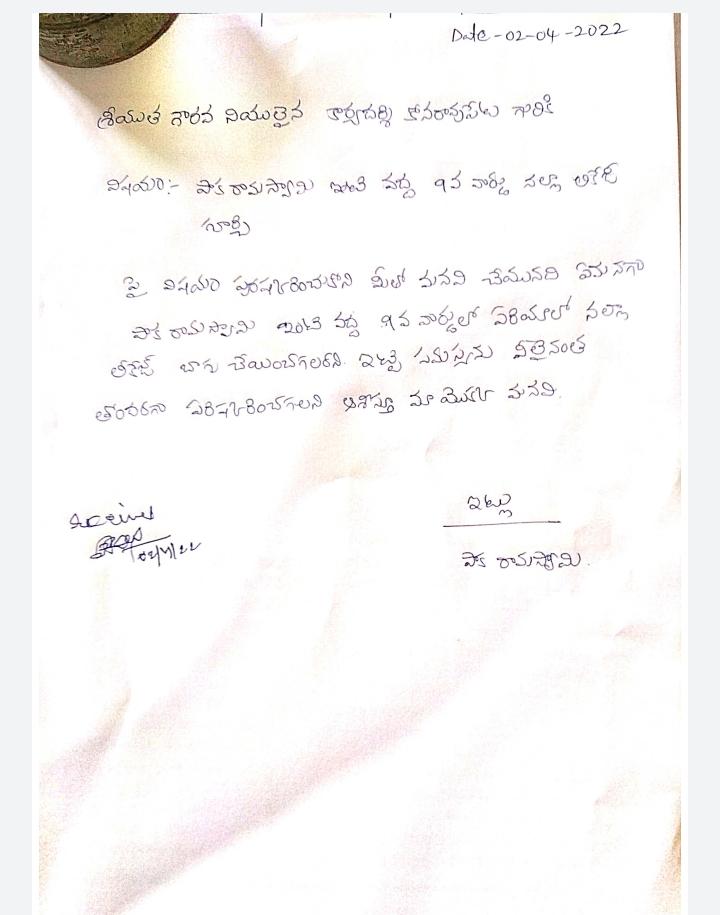 Date - 02-04-2022
శ్రీయుత గౌరవ నియులైన కార్యదర్శి కోనరావుపేట గారికి
విషయం:- పాక రామస్వామి ఇంటి వద్ద 9వ వార్డు నల్లా లికేజి
గూర్చి
పై విషయం పురష్కరించుకొని మీతో మనవి చేయునది ఏమనగా
పాక రామస్వామి ఇంటి వద్ద 9వ వార్డులో ఏరియాలో నల్లా
లీకేజ్ బాగు చేయించగలరని. ఇట్టి సమస్యను వీలైనంత
తొందరగా పరిష్కరించగలని ఆశిస్తూ మా యొక్క మనవి.
ఇట్లు
పాక రామస్వామి.
Received
02/4/22